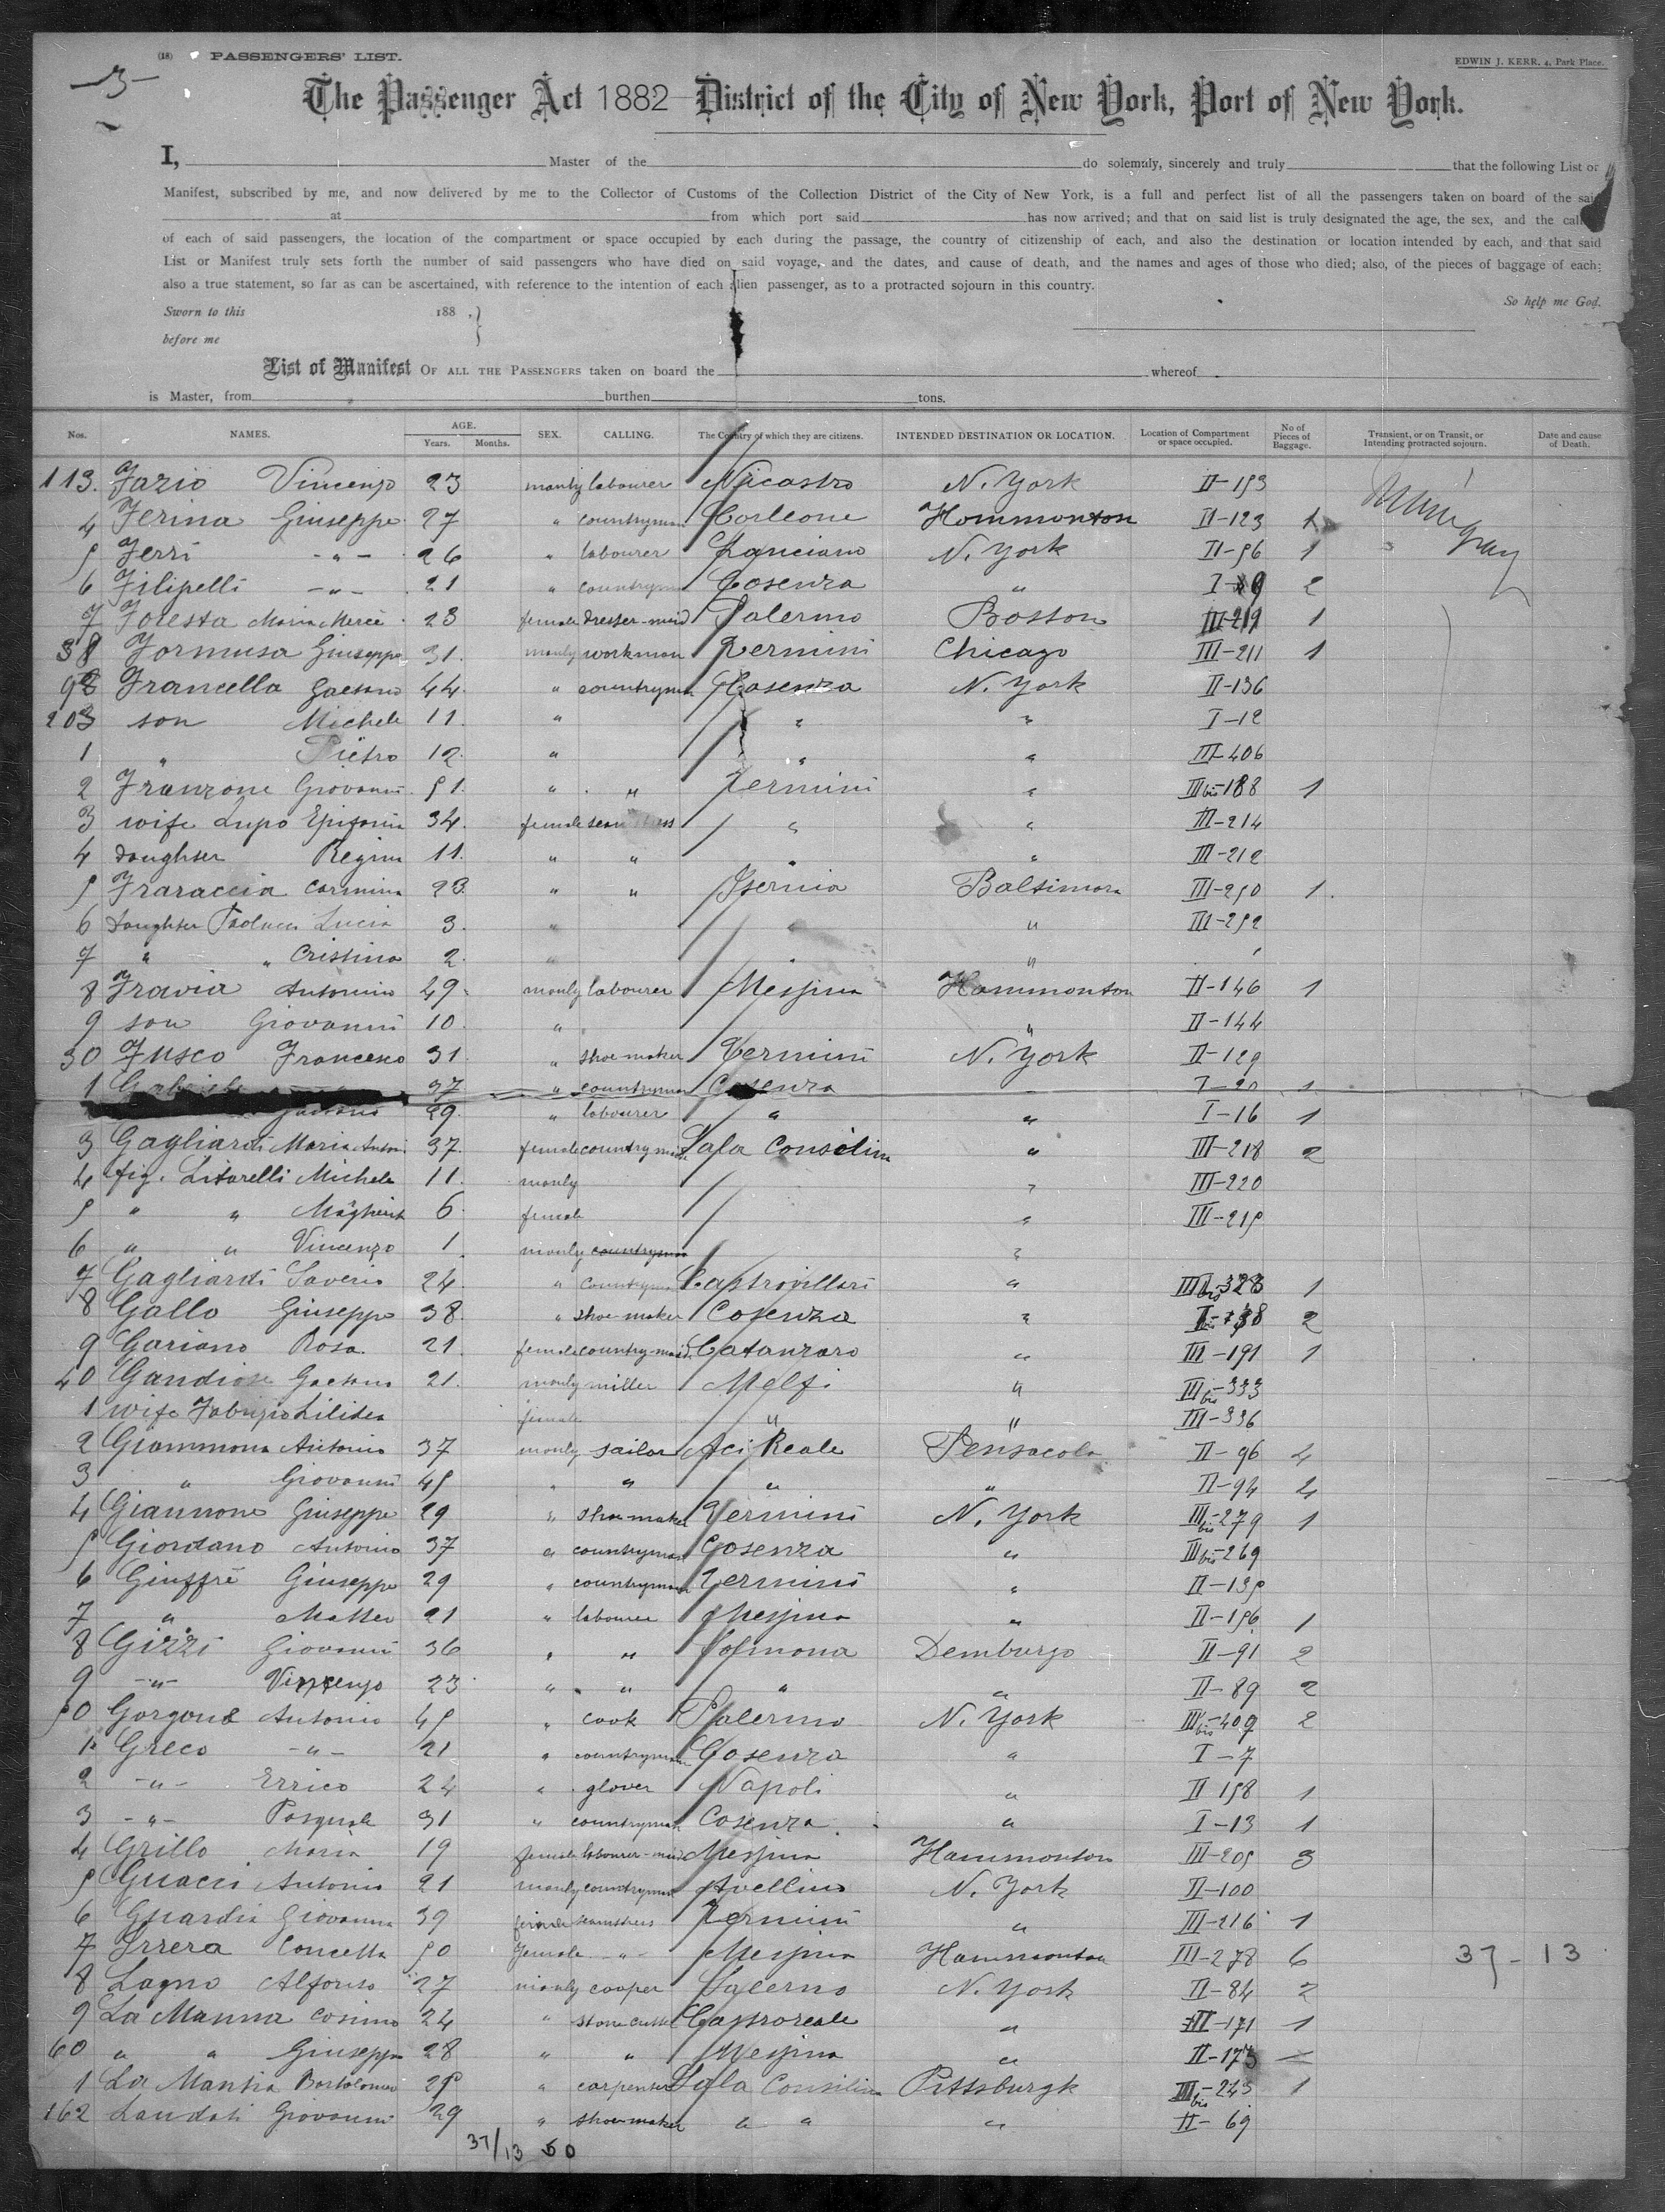 (18) PASSENGERS' LIST.
EDWIN J. KERR, 4, Park Place.
The Passenger Act 1882 District of the City of New York, Port of New York.
I, Master of the do solemnly, sincerely and truly that the following List or
Manifest, subscribed by me, and now delivered by me to the Collector of Customs of the Collection District of the City of New York, is a full and perfect list of all the passengers taken on board of the said
at from which port said has now arrived; and that on said list is truly designated the age, the sex, and the
of each of said passengers, the location of the compartment or space occupied by each during the passage, the country of citizenship of each, and also the destination or location intended by each, and that said
List or Manifest truly sets forth the number of said passengers who have died on said voyage, and the dates, and cause of death, and the names and ages of those who died; also, of the pieces of baggage of each;
also a true statement, so far as can be ascertained, with reference to the intention of each alien passenger, as to a protracted sojourn in this country.
So help me God.
Sworn to this 188 .
before me
List of Manifest OF ALL THE PASSENGERS taken on board the whereof
is Master, from burthen tons.
Nos. NAMES. AGE. Years. Months. SEX. CALLING. The Country of which they are citizens. INTENDED DESTINATION OR LOCATION. Location of Compartment or space occupied. No of Pieces of Baggage. Transient, or on Transit, or Intending protracted sojourn. Date and cause of Death.
113. Fazio Vincenzo 23 manly labourer Nicastro N. York II-153
4 Ferina Giuseppe 27 " countryman Corleone Hommonton II-123 1
5 Ferri -"- 26 " labourer Lanciano N. York II-56 1
6 Filipelli -"- 21 " countryman Cosenza " 2
7 Foresta Maria Mercè 23 female dresser-maid Palermo Boston III-219 1
8 Formusa Giuseppe 31. manly workman Termini Chicago III-211 1
9 Francella Gaetano 44. " countryman Cosenza N. York II-136
20 son Michele 11. " " " I-12
1 " Pietro 12. " " " III-406
2 Franzone Giovanni 51. " " Termini " III bis-188 1
3 wife Lupo Epifania 34. female seamstress " " III-214
4 daughter Regina 11. " " " " III-212
5 Fraraccia Carmina 23. " " Isernia Baltimora III-250 1.
6 daughter Paolucci Lucia 3. " " " III-252
7 " " Cristina 2. " " "
8 Fravia Antonino 49. manly labourer Messina Hammonton II-146 1
9 son Giovanni 10. " " II-144
30 Fusco Francesco 31. " shoe-maker Termini N. York II-129
1 37 " countryman Cosenza - I-20 1
Gaetano 29. " labourer " " I-16 1
3 Gagliardi Maria Anton. 37. female country-maid Sala Consilina " III-218 2
4 fig. Litarelli Michele 11. manly " III-220
5 " " 6. female " III-215
6 " " Vincenzo 1. manly countryman "
7 Gagliardi Saverio 24. " countryman Castrovillari " III bis-328 1
8 Gallo Giuseppe 38. " shoe-maker Cosenza " 2
9 Gariano Rosa. 21. female country-maid Catanzaro " III-191 1
40 Gaudiose Gaetano 21. manly miller Melfi " III bis-333
1 wife Fabrizio female " " III-336
2 Giammona Antonio 37 manly sailor Aci Reale Pensacola II-96 4
3 " Giovanni 45 " " " " II-94 2
4 Giannone Giuseppe 29 " shoe-maker Termini N. York III bis-279 1
5 Giordano Antonio 37 " countryman Cosenza " III bis-269
6 Giuffrè Giuseppe 29 " countryman Termini " II-135
7 " Matteo 21 " labourer Messina " II-156 1
8 Gizzi Giovanni 36 " " Solmona Demburgo II-91 2
9 -"- Vincenzo 23 " " " " II-89 2
50 Gorgone Antonio 45 " cook Palermo N. York III bis-409 2
1 Greco -"- 21 " countryman Cosenza " I-7
2 -"- Errico 24 " glover Napoli " II 158 1
3 -"- Pasquale 31 " countryman Cosenza " I-13 1
4 Grillo Maria 19 female labourer-maid Messina Hammonton III-205 3
5 Guacci Antonio 21 manly countryman Avellino N. York II-100
6 Guardia Giovanna 39 female seamstress Termini " III-216 1
7 Irrera Concetta 50 female -"- Messina Hammonton III-278 6 37-13
8 Lagno Alfonso 27 manly cooper Salerno N. York II-84 2
9 La Manna Cosimo 24 " stone cutter Castroreale " II-171 1
60 " " Giuseppe 28 " " Messina " II-173 -
1 La Mantia Bartolomeo 25 " carpenter Sala Consilina Pittsburgh III bis-245 1
162 Landati Giovanni 29 " shoe-maker " " " II-69
37/13 50